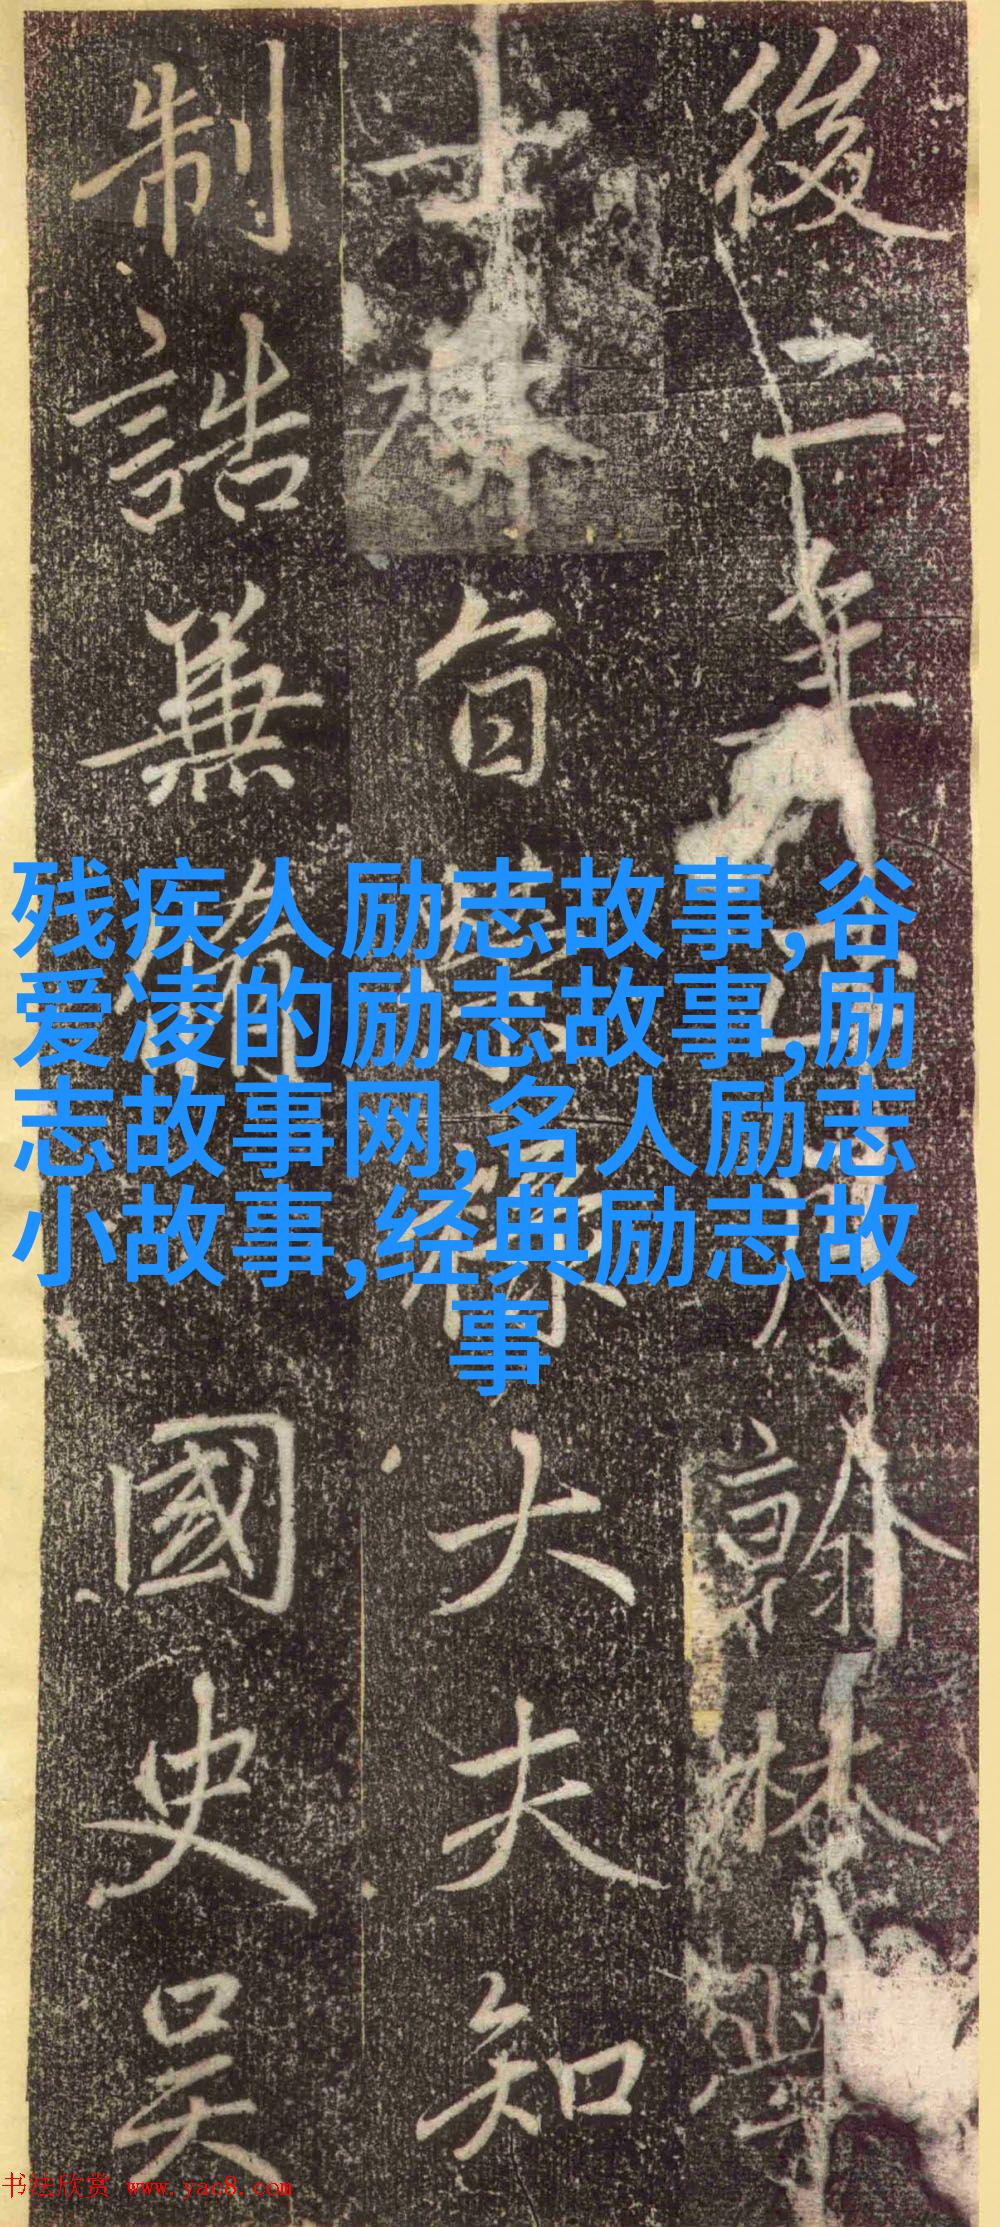 後二年正月翰林學
士中旨大夫知
制誥兼脩國史吴
残疾人励志故事,谷
爱凌的励志故事,励
志故事网,名人励志
小故事,经典励志故
事
书法欣赏 www.yac8.com